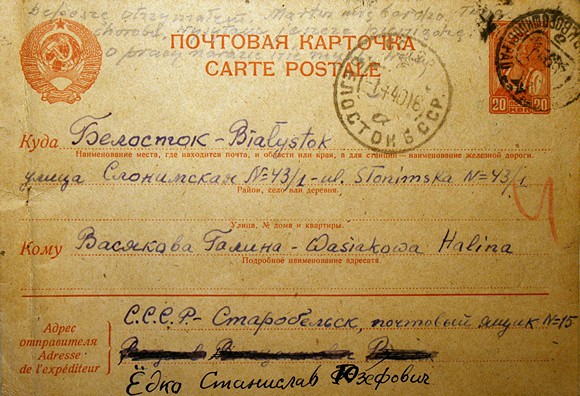 Depeszę otrzymałem.
ПОЧТОВАЯ КАРТОЧКА
CARTE POSTALE
БЕЛОСТОК БССР
20 20
Куда Белосток - Białystok
Наименование места, где находится почта, и области или края, а для станции — наименование железной дороги.
улица Слонимская № 43/1 - ul. Słonimska N= 43/1
Район, село или деревня.
Улица, № дома и квартиры.
Кому Васякова Галина - Wasiakowa Halina
Подробное наименование адресата.
Адрес отправителя
Adresse de l'expéditeur
С.С.С.Р. - Старобельск, почтовый ящик N=15
Ёдко Станислав Юзефович